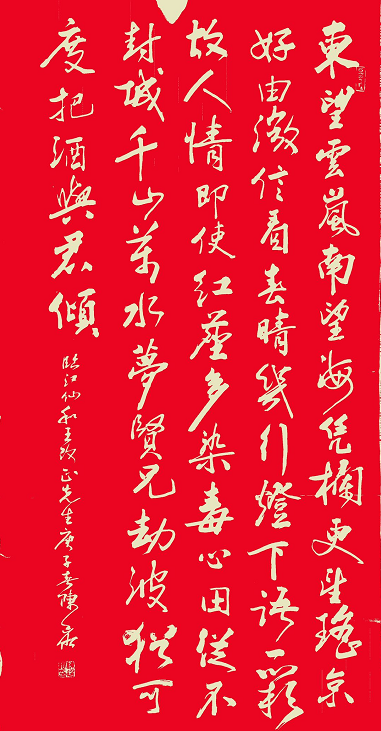 東望雲嵐南望海凭欄更望瑤京
好由微信看春晴幾行燈下語一顆
故人情即使紅塵多染毒心田從不
封城千山萬水夢賢兄劫波猶可
度把酒與君傾
臨江仙和王改正先生庚子春陳